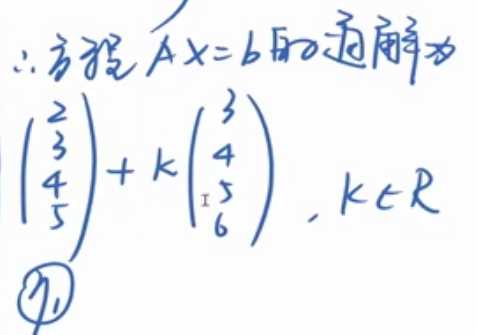 ∴方程 AX=b的通解为
(2 3 4 5) + k (3 4 5 6) , k∈R
η₁